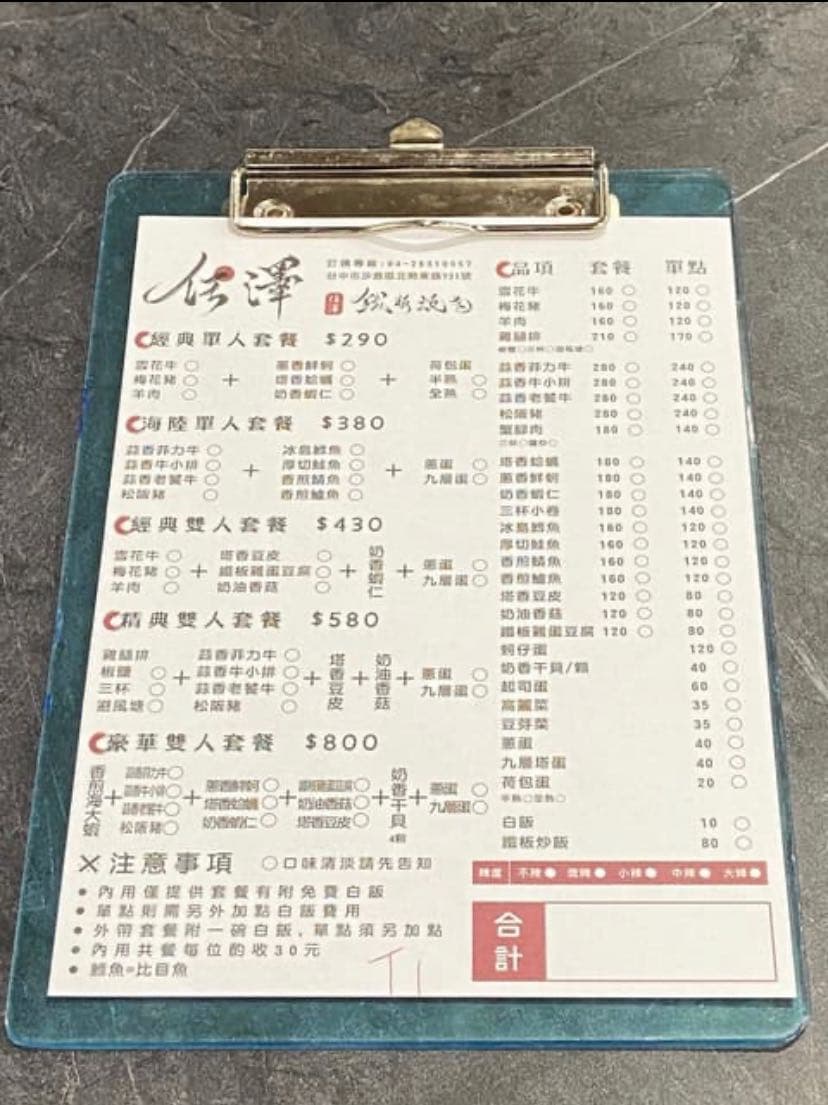 佶澤
鐵板燒
經典單人套餐 $290
雪花牛 蔥香鮮蚵 荷包蛋
梅花豬 + 塔香蛤蠣 + 半熟
羊肉 奶香蝦仁 全熟
海陸單人套餐 $380
蒜香菲力牛 冰島鱈魚
蒜香牛小排 + 厚切鮭魚 + 蔥蛋
蒜香老饕牛 香煎鯖魚 九層蛋
松阪豬 香煎鱸魚
經典雙人套餐 $430
雪花牛 塔香豆皮 蔥蛋
梅花豬 + 鐵板雞蛋豆腐 + 奶香蝦仁 + 九層蛋
羊肉 奶油香菇
精典雙人套餐 $580
雞腿排 蒜香菲力牛
椒鹽 + 蒜香牛小排 + 塔香豆皮 + 奶油香菇 + 蔥蛋
三杯 蒜香老饕牛 九層蛋
避風塘 松阪豬
豪華雙人套餐 $800
香煎海大蝦 + 蒜香菲力牛 + 蔥香鮮蚵 + 鐵板雞蛋豆腐 + 奶香干貝4顆 + 蔥蛋
蒜香牛小排 塔香蛤蠣 奶油香菇 九層蛋
蒜香老饕牛 奶香蝦仁 塔香豆皮
松阪豬
✕注意事項 口味清淡請先告知
• 內用僅提供套餐有附免費白飯
• 單點則需另外加點白飯費用
• 外帶套餐附一碗白飯,單點須另加點
• 內用共餐每位酌收30元
• 鱈魚=比目魚
品項 套餐 單點
雪花牛 160 120
梅花豬 160 120
羊肉 160 120
雞腿排 210 170
蒜香菲力牛 280 240
蒜香牛小排 280 240
蒜香老饕牛 280 240
松阪豬 280 240
蟹腳肉 180 140
塔香蛤蠣 180 140
蔥香鮮蚵 180 140
奶香蝦仁 180 140
三杯小卷 180 140
冰島鱈魚 160 120
厚切鮭魚 160 120
香煎鯖魚 160 120
香煎鱸魚 160 120
塔香豆皮 120 80
奶油香菇 120 80
鐵板雞蛋豆腐 120 80
蚵仔蛋 120
奶香干貝/顆 40
起司蛋 60
高麗菜 35
豆芽菜 35
蔥蛋 40
九層塔蛋 40
荷包蛋 20
半熟 全熟
白飯 10
鐵板炒飯 80
辣度 不辣 微辣 小辣 中辣 大辣
合計